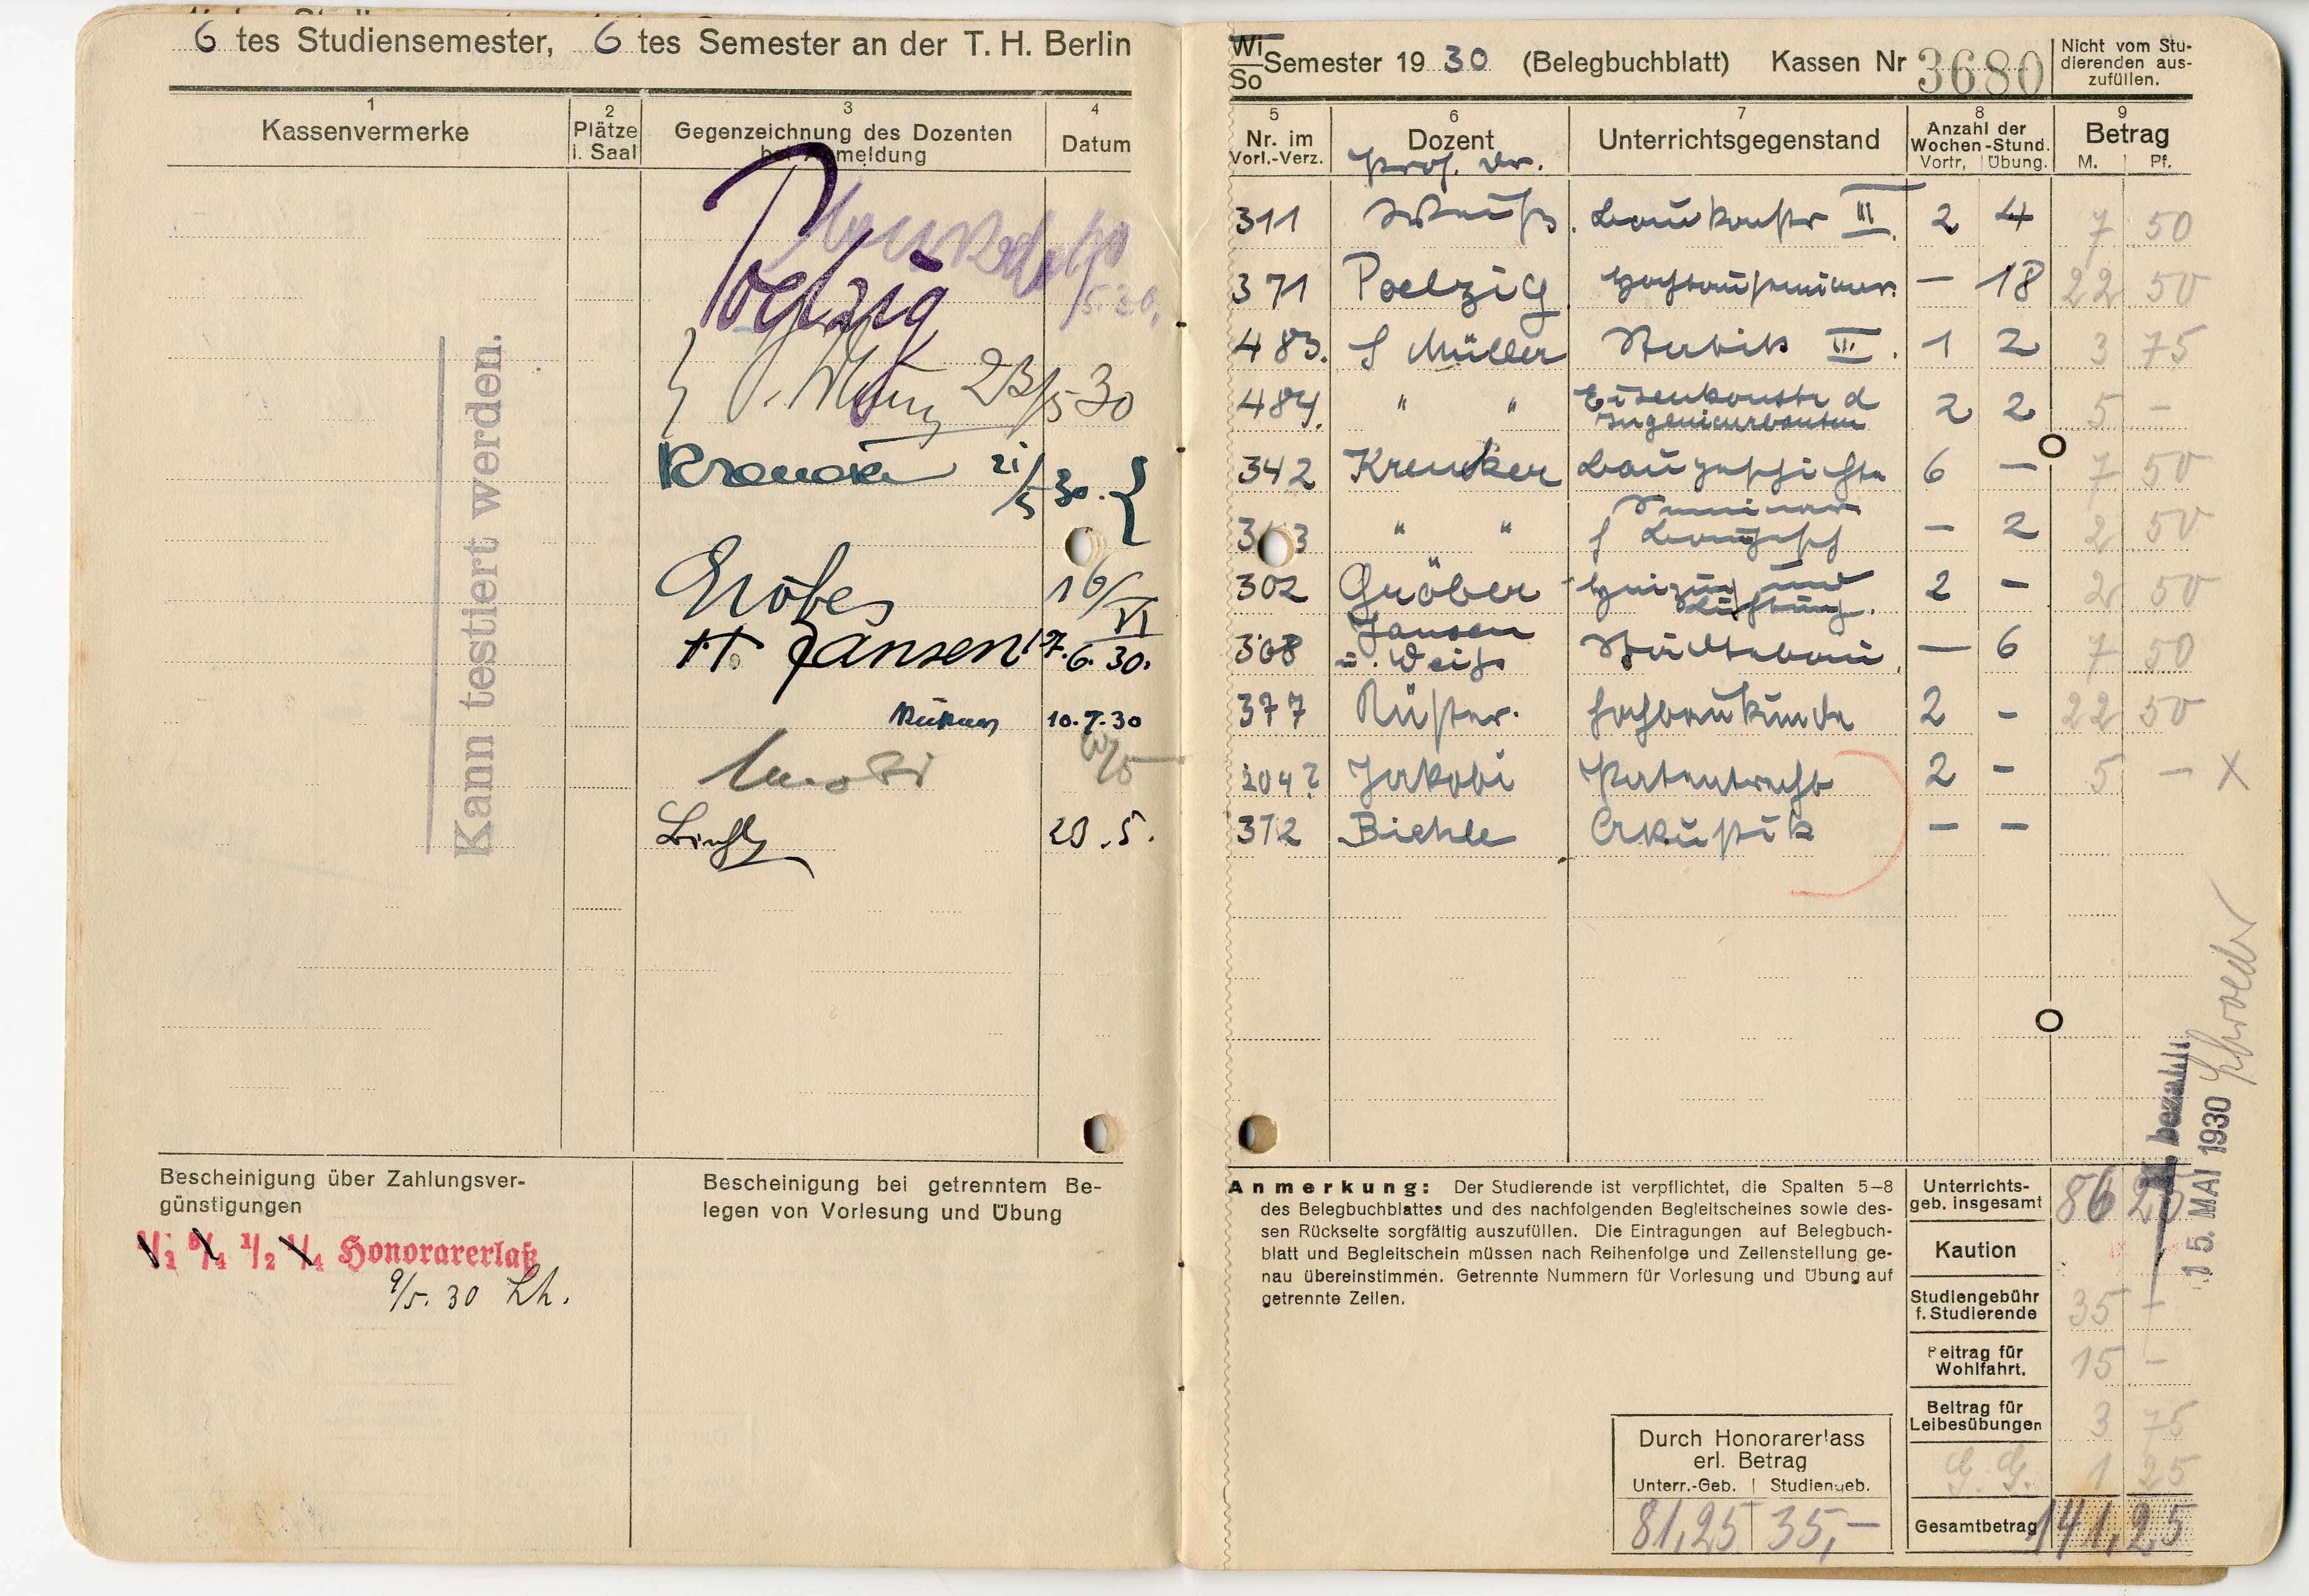 6 tes Studiensemester, 6 tes Semester an der T. H. Berlin
1
Kassenvermerke
2
Plätze
i. Saal
3
Gegenzeichnung des Dozenten
bei Anmeldung
4
Datum
Poelzig
23/5 30
Krencker 21/5 30.
Gröber 16/VI
H. Jansen 17.6.30.
10.7.30
Biehle 20.5.
Kann testiert werden.
Bescheinigung über Zahlungsver-
günstigungen
1/1 3/4 1/2 1/4 Honorarerlaß
9/5. 30 Lh.
Bescheinigung bei getrenntem Be-
legen von Vorlesung und Übung
Wi
So Semester 19 30 (Belegbuchblatt) Kassen Nr 3680
Nicht vom Stu-
dierenden aus-
zufüllen.
5
Nr. im
Vorl.-Verz.
6
Dozent
7
Unterrichtsgegenstand
8
Anzahl der
Wochen-Stund.
Vortr. Übung.
9
Betrag
M. Pf.
Prof. Dr.
311 Baukonstr III. 2 4 7 50
371 Poelzig Hochbauseminar. – 18 22 50
483. S Müller Statik III. 1 2 3 75
484. " " Eisenkonstr d
Ingenieurbauten 2 2 5 –
342 Krencker Baugeschichte 6 – 7 50
3 3 " " Seminar
f Baugesch – 2 2 50
302 Gröber Heizung und
Lüftung. 2 – 2 50
308 Jansen
u. Weiß Städtebau. – 6 7 50
377 Rüster. Hochbaukunde 2 – 22 50
104? Jakobi Patentrecht 2 – 5 – X
372 Biehle Akustik – –
bezahlt
15. MAI 1930
Schroeder
Anmerkung: Der Studierende ist verpflichtet, die Spalten 5–8
des Belegbuchblattes und des nachfolgenden Begleitscheines sowie des-
sen Rückseite sorgfältig auszufüllen. Die Eintragungen auf Belegbuch-
blatt und Begleitschein müssen nach Reihenfolge und Zeilenstellung ge-
nau übereinstimmen. Getrennte Nummern für Vorlesung und Übung auf
getrennte Zeilen.
Unterrichts-
geb. insgesamt 86 25
Kaution
Studiengebühr
f. Studierende 35 –
Beitrag für
Wohlfahrt. 15 –
Beitrag für
Leibesübungen 3 75
G. G. 1 25
Gesamtbetrag 141,25
Durch Honorarerlass
erl. Betrag
Unterr.-Geb. Studiengeb.
81,25 35,–